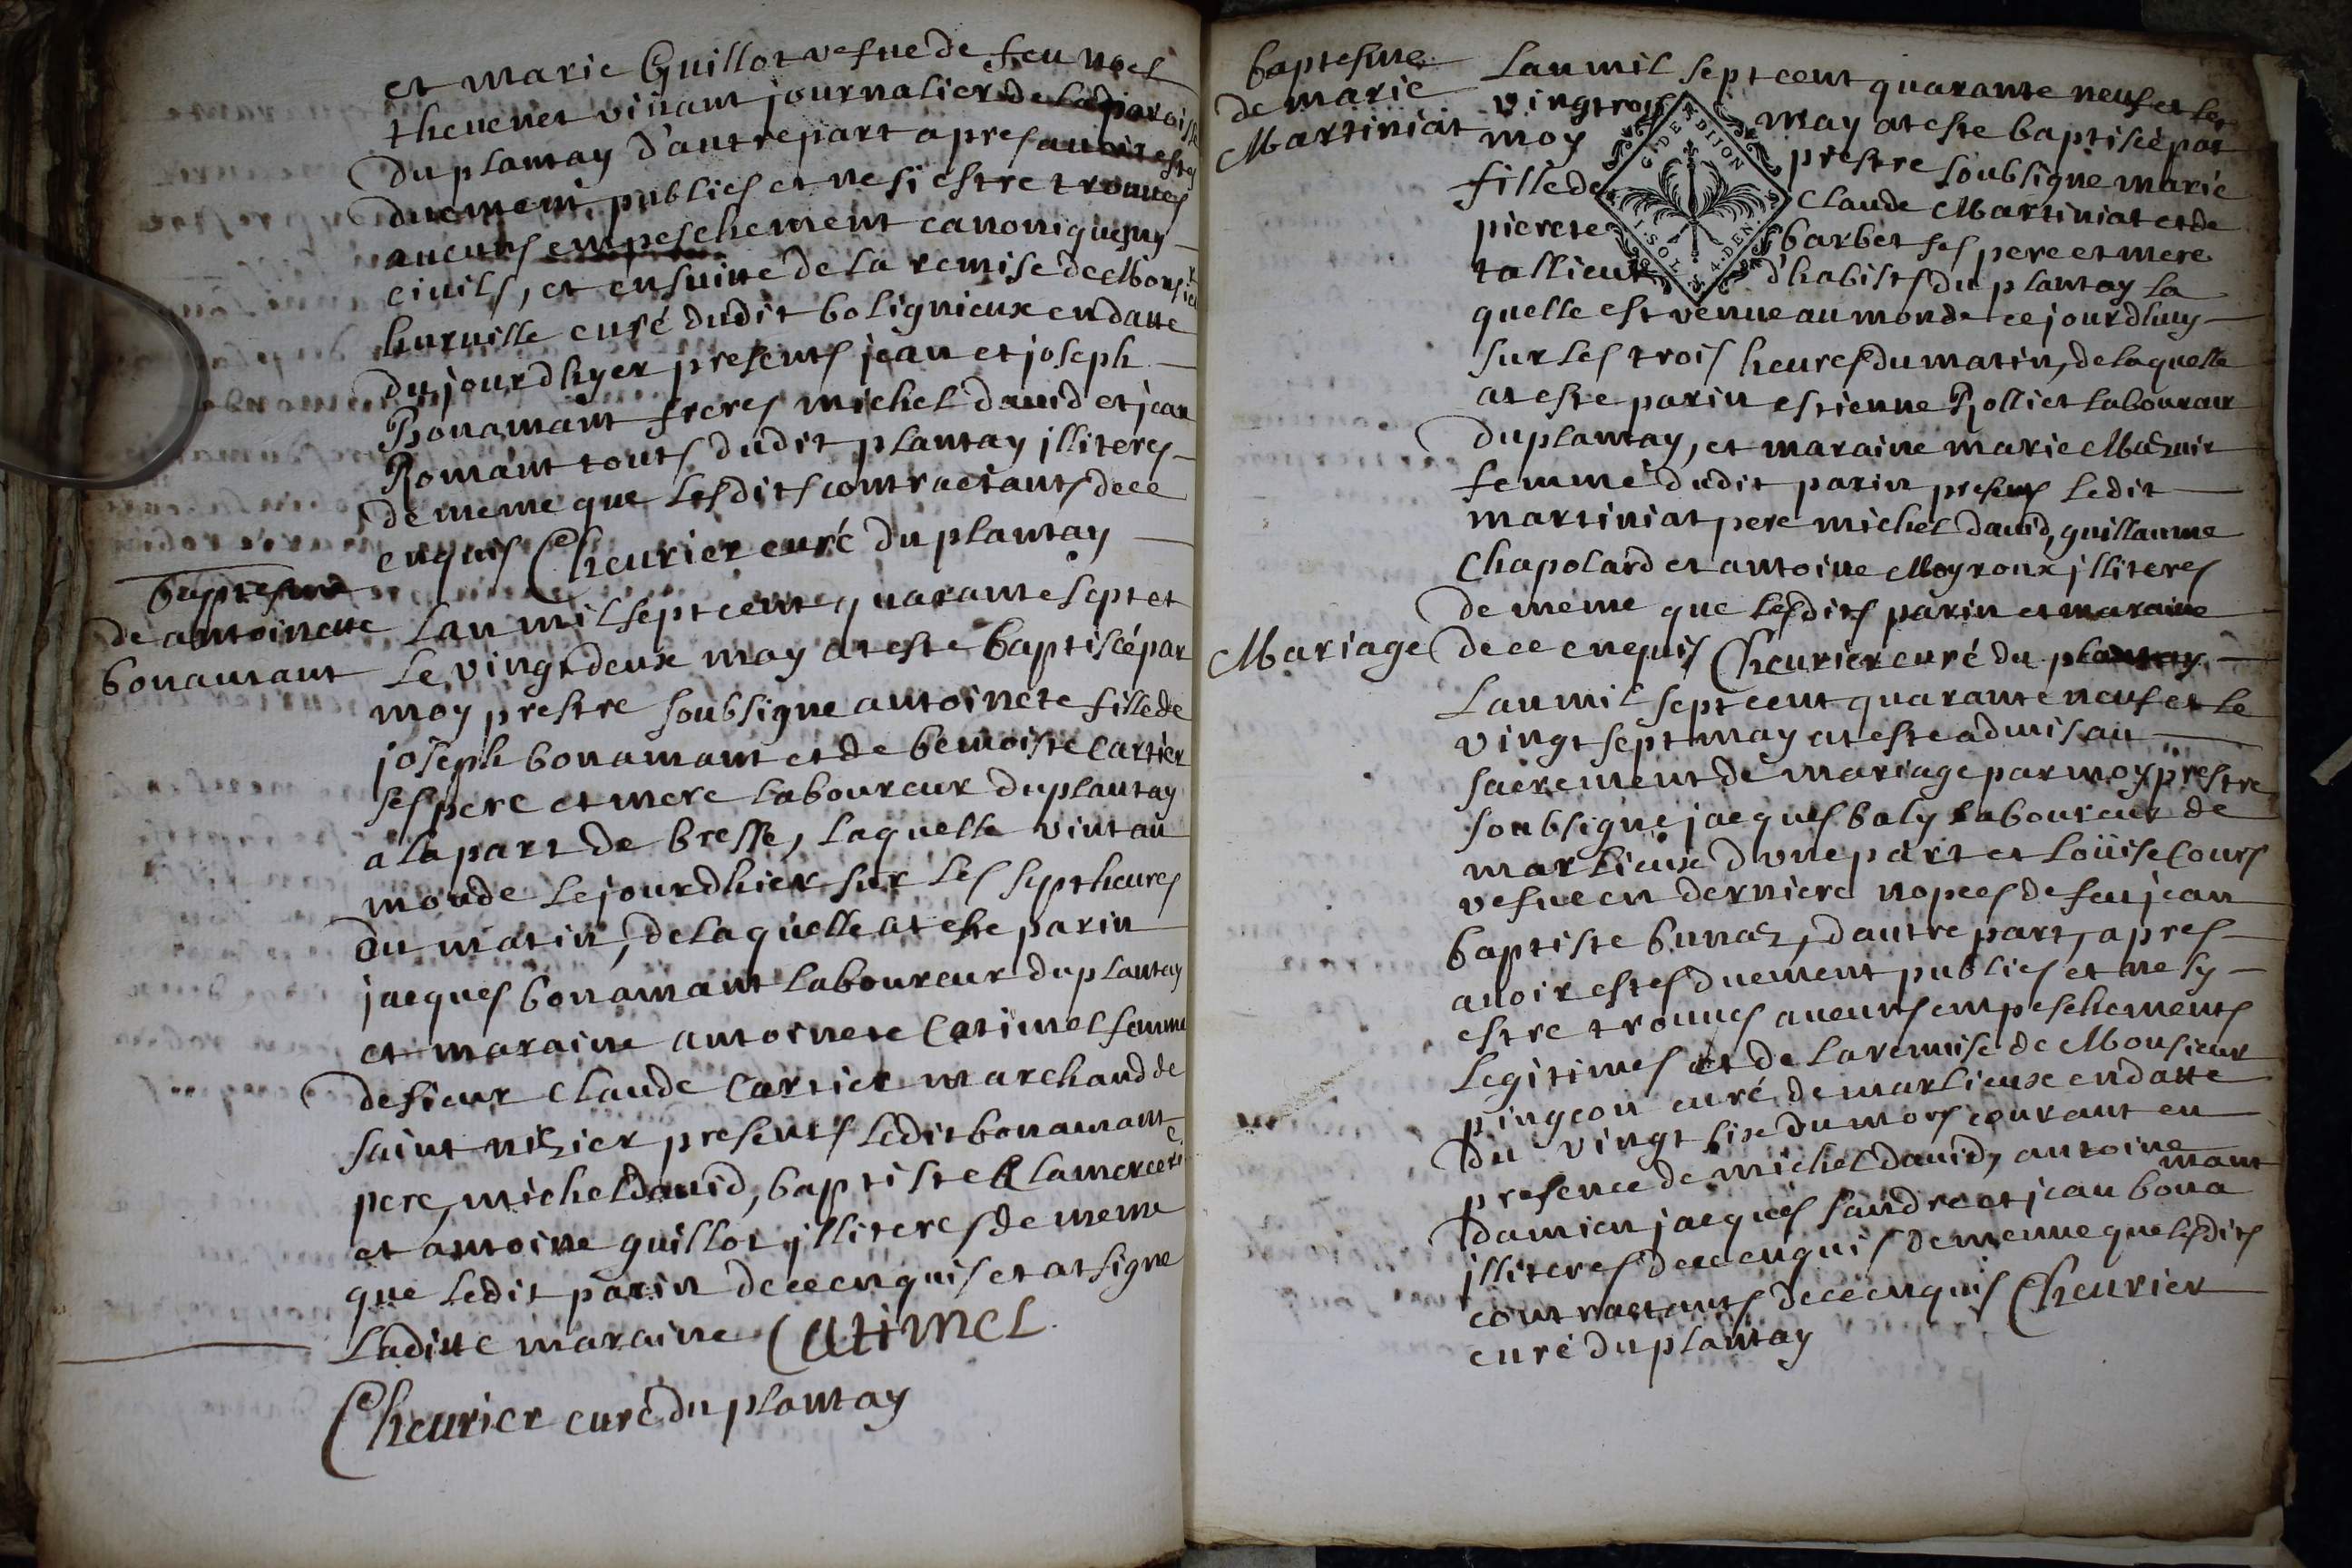 et marie Guillot vefue de feu noel
theuenet viuant journalier de la paroisse
du plantay d'autre part apres auoir estes
duement publies et ne si estre trouues
aucuns empeschement canoniques ny
ciuils, et ensuitte de la remise de Monsieur
curé dudit bolignieux en datte
du jourdhyer presents jean et joseph
Bonamant freres michel dauid et jean
Romant touts dudit plantay illiteres
de meme que lesdits contractants de ce
enquis Cheurier curé du plantay
baptesme
de antoinette
bonamant
Lan mil sept cent quarante sept et
le vingt deux may at este baptisé par
moy prestre soubsigne antoinete fille de
joseph bonamant et de benoiste Cartier
ses pere et mere laboureur du plantay
a la part de bresse, laquelle vint au
monde le jourdhier sur les sept heures
du matin, de laquelle at este parin
jacques bonamant laboureur du plantay
et maraine antoinete Catimel femme
de sieur Claude Cartier marchand de
saint nizier presents ledit bonamant
pere, michel dauid, baptiste
et antoine guillot illiteres de meme
que ledit parin de ce enquis et at signe
laditte maraine Catimel
Cheurier curé du plantay
baptesme
de marie
Martiniat
Lan mil sept cent quarante neuf et le
vingtrois may at este baptisé par
moy prestre soubsigne marie
fille de Claude Martiniat et de
pierete barbet ses pere et mere
tallieur d'habists du plantay la
G. DE DIJON
1. SOL. 4. DEN.
quelle est venue au monde ce jourdhuy
sur les trois heures du matin, de laquelle
at este parin estienne Rolliet laboureur
du plantay, et maraine marie Mazuir
femme dudit parin presents ledit
martiniat pere michel dauid, guillaume
Chapolard et antoine Moyroux illiteres
de meme que lesdits parin et maraine
de ce enquis Cheurier curé du plantay
Mariage
Lan mil sept cent quarante neuf et le
vingt sept may at este admis au
sacrement de mariage par moy prestre
soubsigne jacques baly laboureur de
marlieux dvne part et Loüise Cours
vefue en derniere nopces de feu jean
baptiste bunaz, dautre part, apres
auoir estes duement publies et ne sy
estre trouues aucuns empeschements
legitimes et de la remise de Monsieur
pingeon curé de marlieux en datte
du vingt six du mois courant en
presence de michel dauid, antoine
damien jacques sandre et jean bona
mant
illiteres de ce enquis de meme que lesdits
contractants de ce enquis Cheurier
curé du plantay